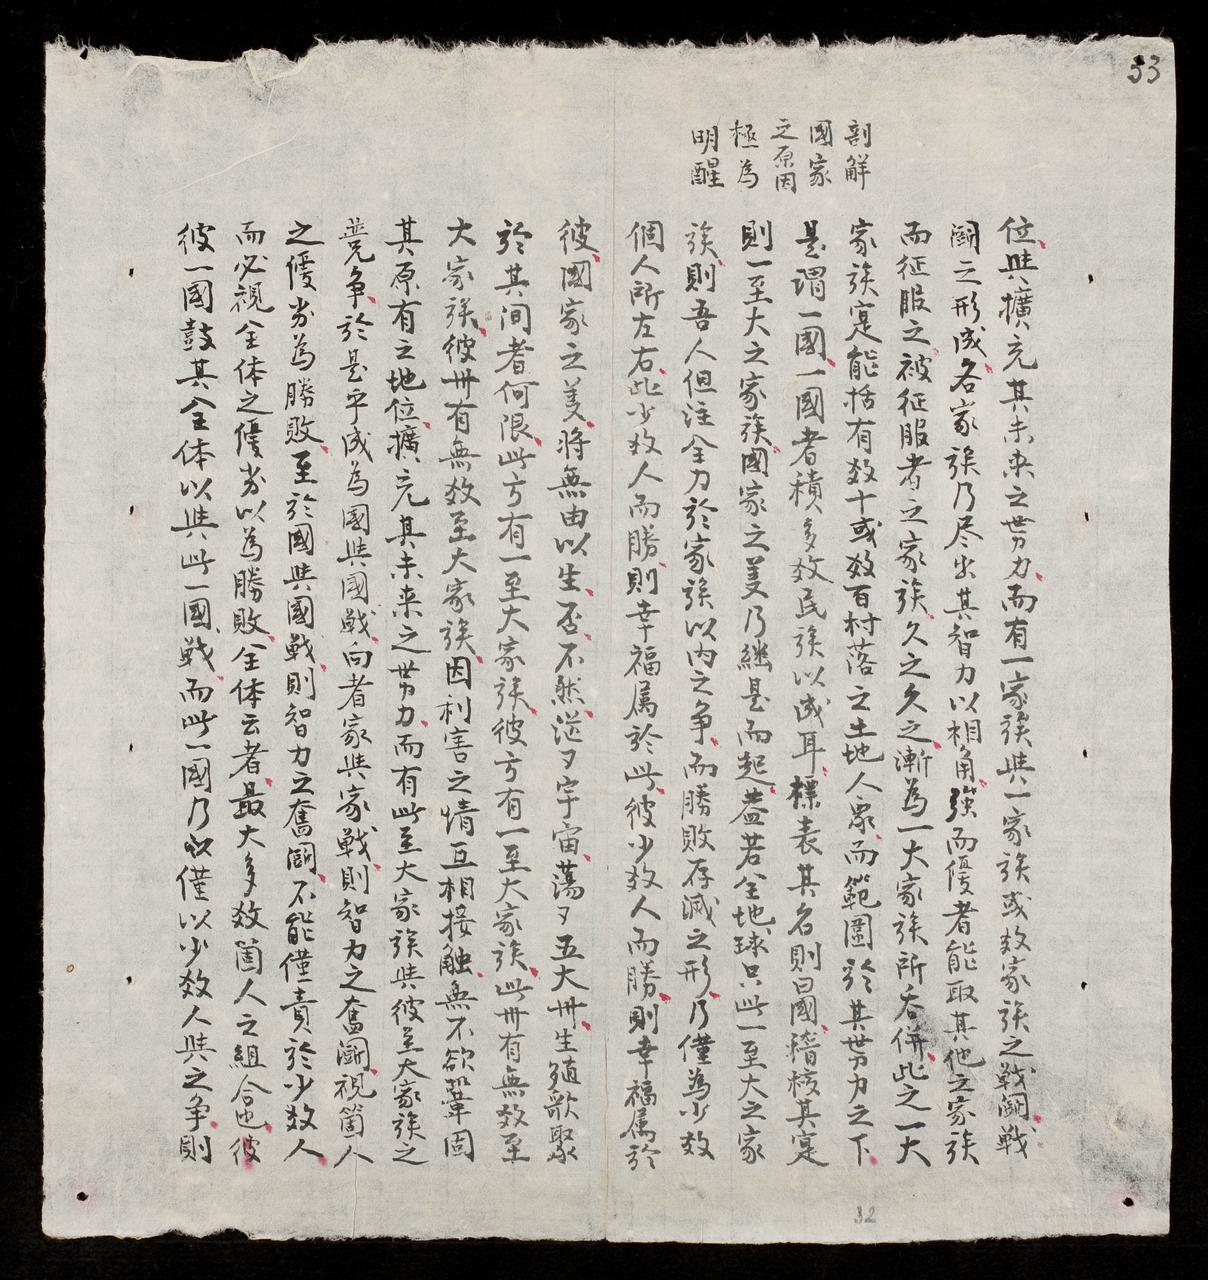 53
剖解
國家
之原因
極為
明醒
位、與擴充其未來之势力、而有一家族與一家族或数家族之戦鬭、戦
鬭之形成、各家族乃尽出其智力以相角、強而優者能取其他之家族
而征服之、被征服者之家族、久之久之、漸為一大家族所吞併、此之一大
家族寔能括有数十或数百村落之土地人衆、而範圍於其势力之下、
是謂一國、一國者積多数民族以成耳、標表其名則曰國、稽核其寔
則一至大之家族、國家之羙乃継是而起、葢若全地球只此一至大之家
族、則吾人但注全力於家族以内之争、而勝敗存滅之形、乃僅為少数
個人所左右、此少数人而勝、則幸福属於此、彼少数人而勝、則幸福属於
彼、國家之羙、将無由以生、否、不然、茫々宇宙、蕩々五大卅、生殖歌聚
於其间者何限、此方有一至大家族、彼方有一至大家族、此卅有無数至
大家族、彼卅有無数至大家族、因利害之情互相接触、無不欲鞏固
其原有之地位、擴充其未来之势力、而有此至大家族與彼至大家族之
競争、於是乎成為國與國戦、向者家與家戦、則智力之奮鬭、視箇人
之優劣為勝敗、至於國與國戦、則智力之奮鬭、不能僅責於少数人、
而必視全体之優劣以為勝敗、全体云者、最大多数箇人之組合也、彼
彼一國鼓其全体以與此一國戦、而此一國乃以僅以少数人與之争、則
32